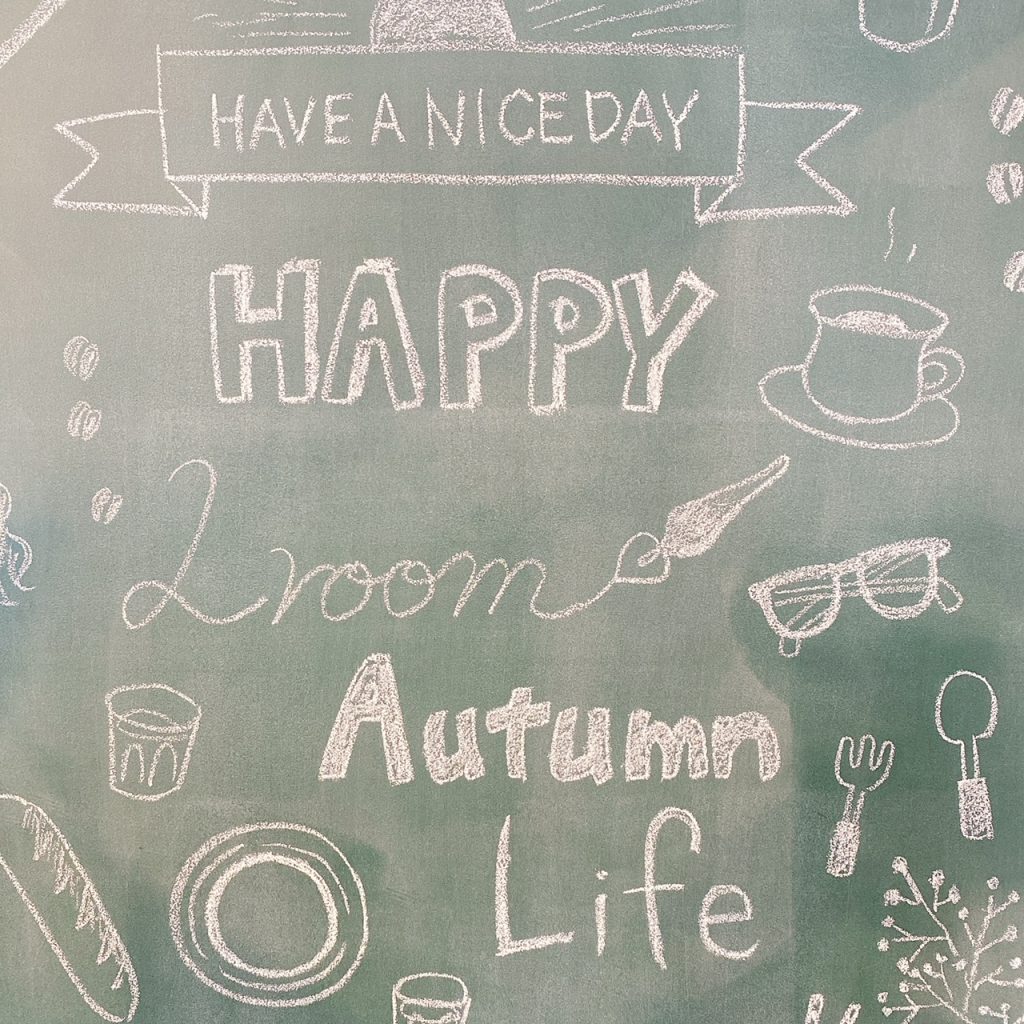 HAVE A NICE DAY
HAPPY
2room
Autumn
Life